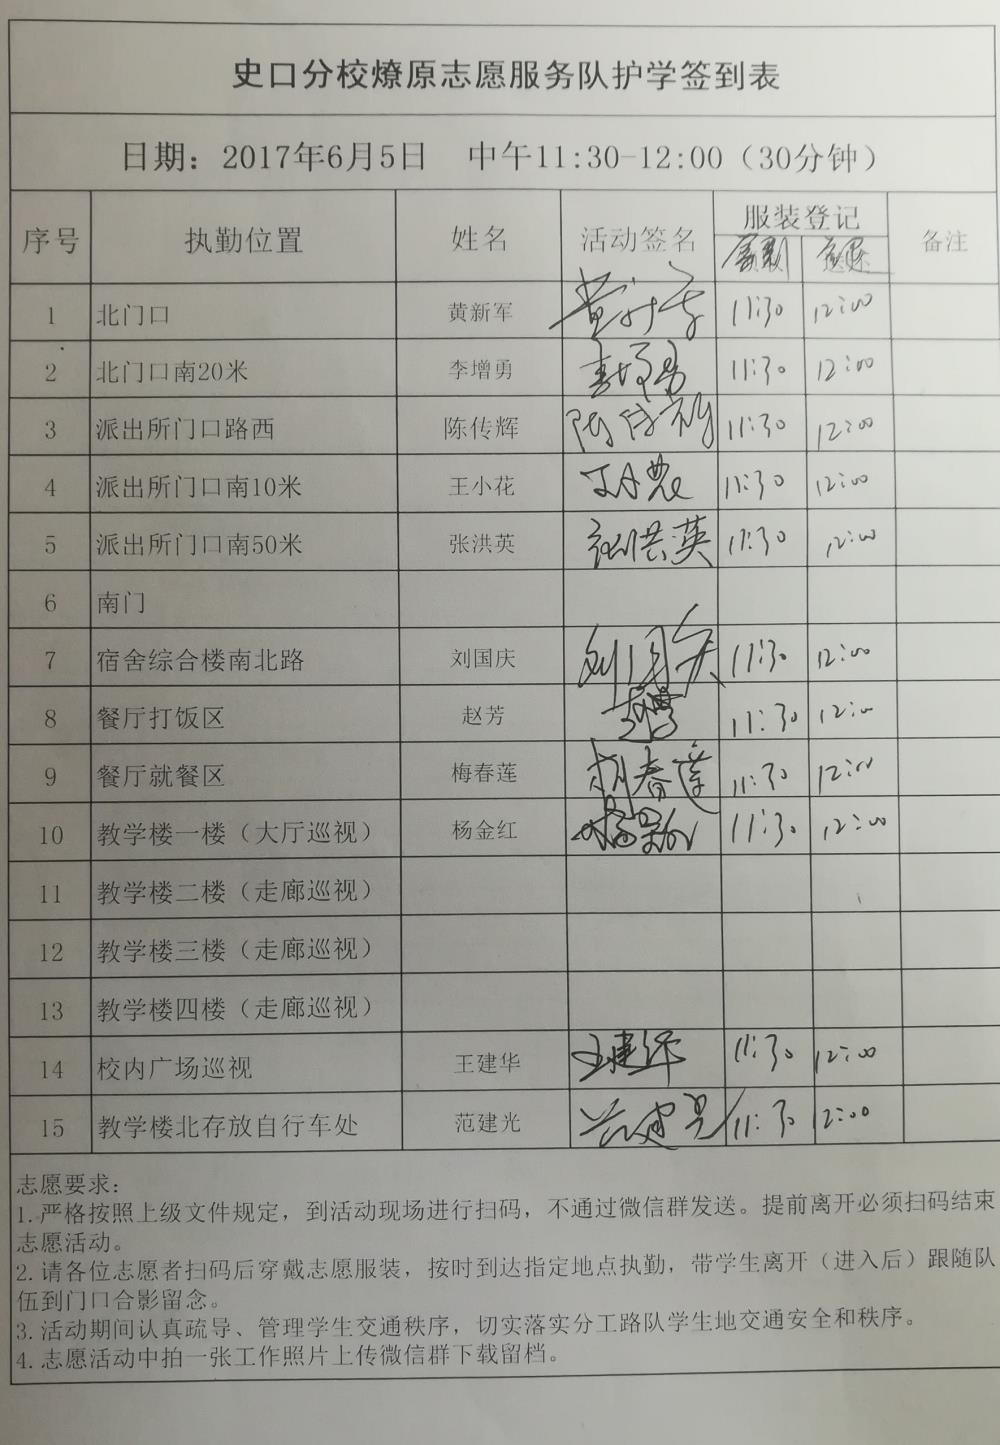 史口分校燎原志愿服务队护学签到表
日期：2017年6月5日 中午11:30-12:00（30分钟）
序号 执勤位置 姓名 活动签名 服装登记 备注
1 北门口 黄新军 黄新军 11:30 12:00
2 北门口南20米 李增勇 李增勇 11:30 12:00
3 派出所门口路西 陈传辉 陈传辉 11:30 12:00
4 派出所门口南10米 王小花 11:30 12:00
5 派出所门口南50米 张洪英 张洪英 11:30 12:00
6 南门
7 宿舍综合楼南北路 刘国庆 刘国庆 11:30 12:00
8 餐厅打饭区 赵芳 11:30 12:00
9 餐厅就餐区 梅春莲 梅春莲 11:30 12:00
10 教学楼一楼（大厅巡视） 杨金红 11:30 12:00
11 教学楼二楼（走廊巡视）
12 教学楼三楼（走廊巡视）
13 教学楼四楼（走廊巡视）
14 校内广场巡视 王建华 王建华 11:30 12:00
15 教学楼北存放自行车处 范建光 范建光 11:30 12:00
志愿要求：
1.严格按照上级文件规定，到活动现场进行扫码，不通过微信群发送。提前离开必须扫码结束
志愿活动。
2.请各位志愿者扫码后穿戴志愿服装，按时到达指定地点执勤，带学生离开（进入后）跟随队
伍到门口合影留念。
3.活动期间认真疏导、管理学生交通秩序，切实落实分工路队学生地交通安全和秩序。
4.志愿活动中拍一张工作照片上传微信群下载留档。